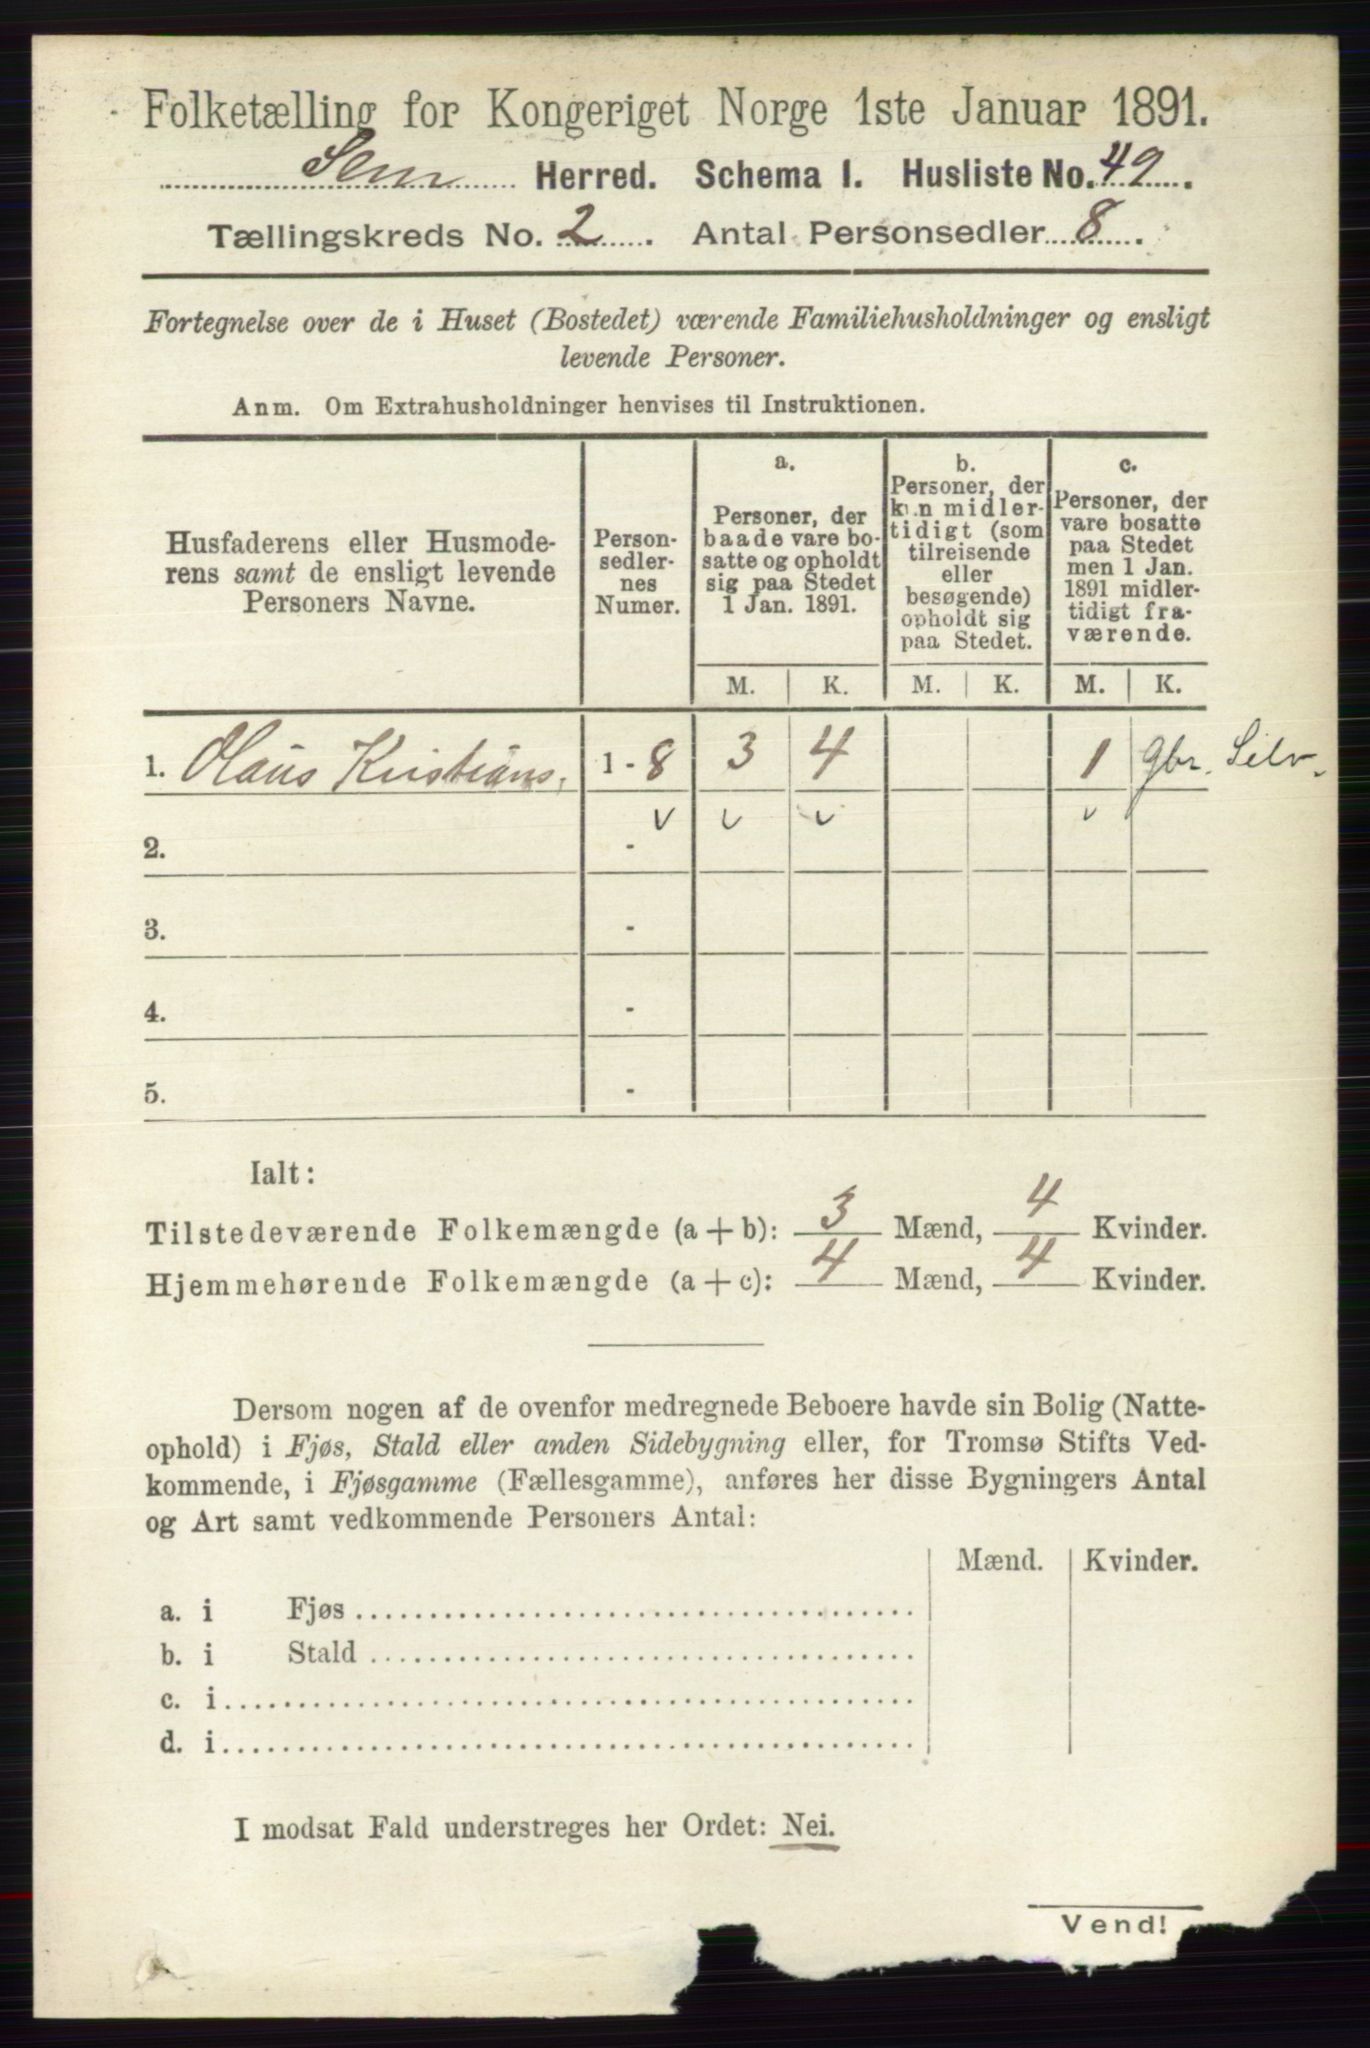 Folketælling for Kongeriget Norge 1ste Januar 1891.
Sem Herred. Schema I. Husliste No. 49.
Tællingskreds No. 2. Antal Personsedler 8.
Fortegnelse over de i Huset (Bostedet) værende Familiehusholdninger og ensligt
levende Personer.
Anm. Om Extrahusholdninger henvises til Instruktionen.
Husfaderens eller Husmode-
rens samt de ensligt levende
Personers Navne.
Person-
sedler-
nes
Numer.
a.
Personer, der
baade vare bo-
satte og opholdt
sig paa Stedet
1 Jan. 1891.
M. K.
b.
Personer, der
kun midler-
tidigt (som
tilreisende
eller
besøgende)
opholdt sig
paa Stedet.
M. K.
c.
Personer, der
vare bosatte
paa Stedet
men 1 Jan.
1891 midler-
tidigt fra-
værende.
M. K.
1. Olaus Kristians. 1 - 8 3 4 1 gbr. Selv.
v v v v
2. -
3. -
4. -
5. -
Ialt:
Tilstedeværende Folkemængde (a + b): 3 Mænd, 4 Kvinder.
Hjemmehørende Folkemængde (a + c): 4 Mænd, 4 Kvinder.
Dersom nogen af de ovenfor medregnede Beboere havde sin Bolig (Natte-
ophold) i Fjøs, Stald eller anden Sidebygning eller, for Tromsø Stifts Ved-
kommende, i Fjøsgamme (Fællesgamme), anføres her disse Bygningers Antal
og Art samt vedkommende Personers Antal:
Mænd. Kvinder.
a. i Fjøs
b. i Stald
c. i
d. i
I modsat Fald understreges her Ordet: Nei.
Vend!